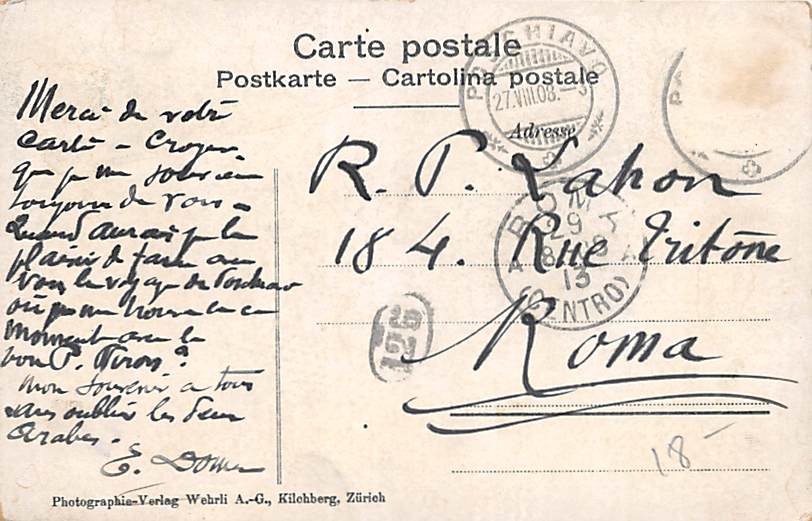 Carte postale
Postkarte — Cartolina postale
Adresse
POSCHIAVO
27.VIII.08.–3
Merci de votre
carte – Croyez
que je me souviens
toujours de vous –
Quand aurai je le
plaisir de faire avec
vous le voyage de Bordeaux
où je me trouve en ce
moment avec le
bon P. ?
Mon souvenir à tous
sans oublier les deux
Arabes.
E.
R. P. Lahon
184. Rue Tritone
Roma
ROMA
29
8
13
(CENTRO)
126
18 –
Photographie-Verlag Wehrli A.-G., Kilchberg, Zürich